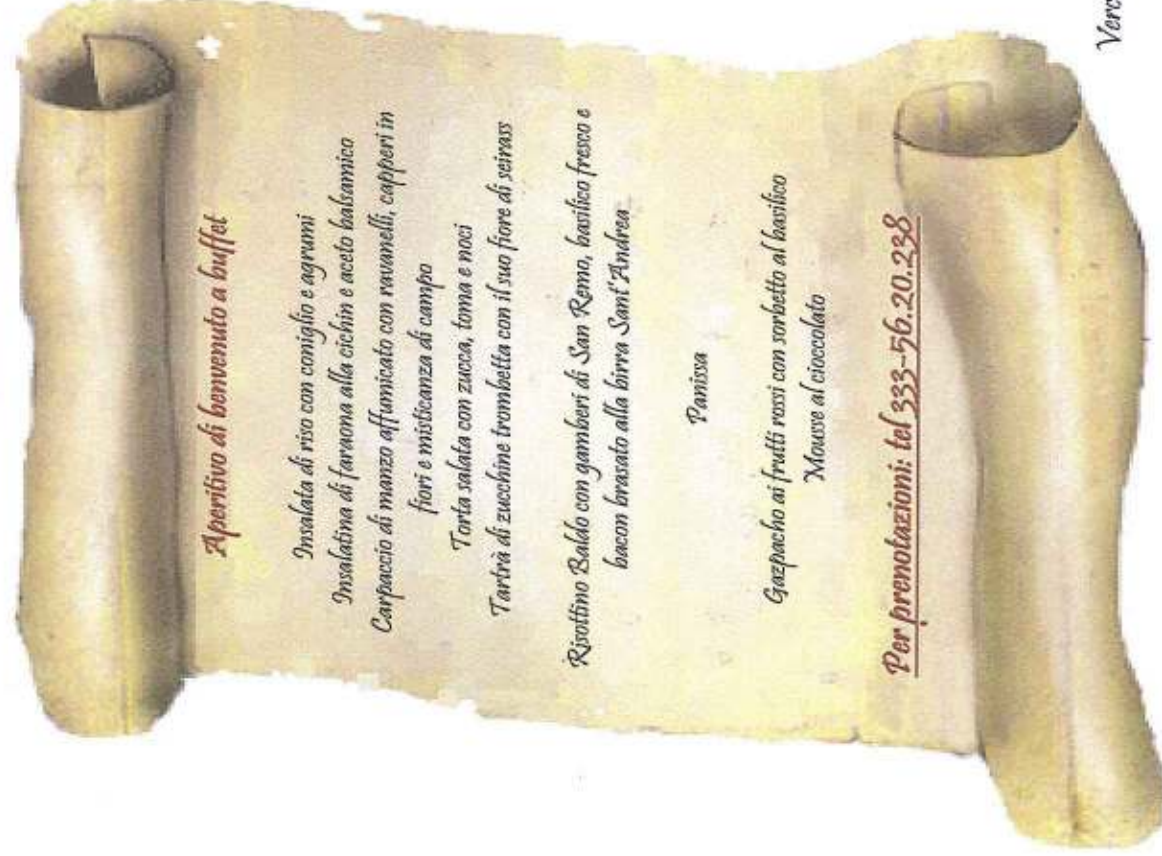 Aperitivo di benvenuto a buffet
Insalata di riso con coniglio e agrumi
Insalatina di faraona alla cichin e aceto balsamico
Carpaccio di manzo affumicato con ravanelli, capperi in
fiori e misticanza di campo
Torta salata con zucca, toma e noci
Tartrà di zucchine trombetta con il suo fiore di seirass
Risottino Baldo con gamberi di San Remo, basilico fresco e
bacon brasato alla birra Sant'Andrea
Panissa
Gazpacho ai frutti rossi con sorbetto al basilico
Mousse al cioccolato
Per prenotazioni: tel 333-56.20.238
Verc